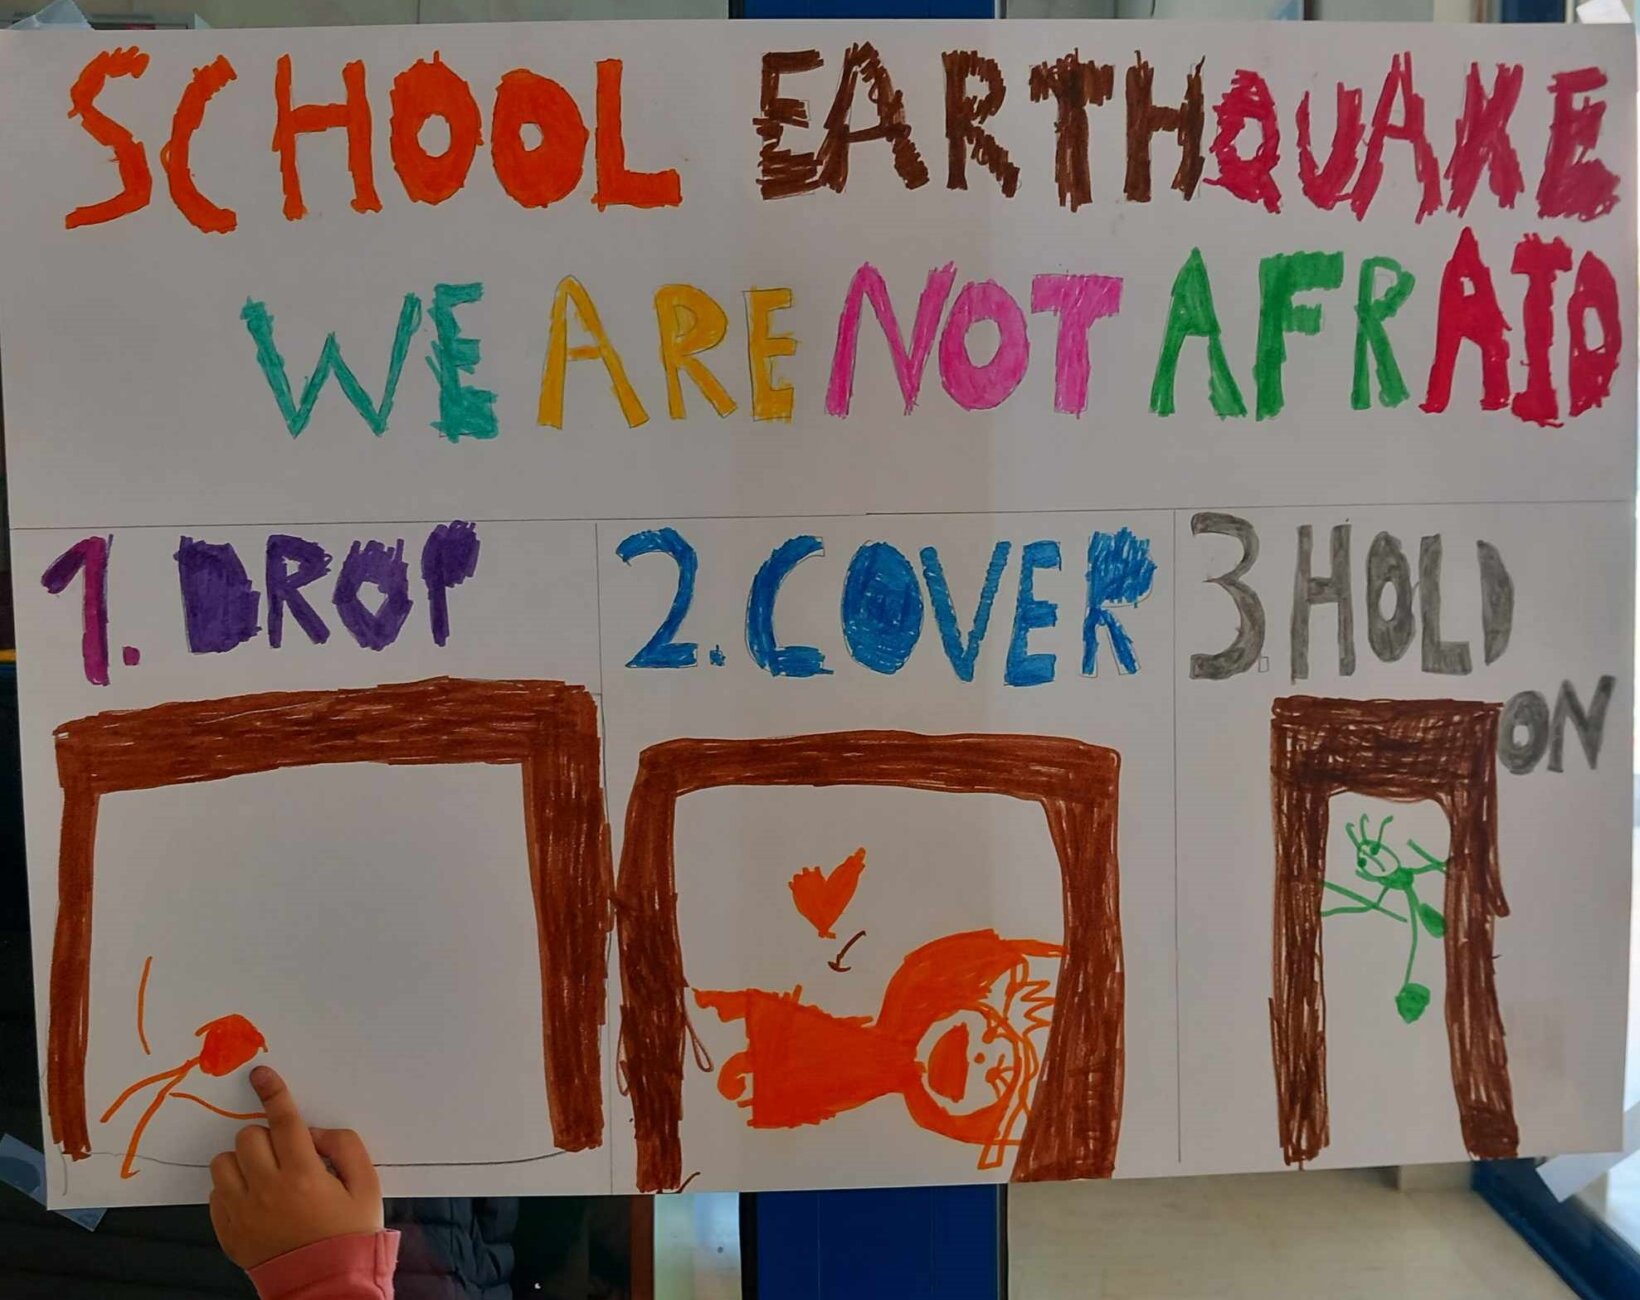 SCHOOL EARTHQUAKE
WE ARE NOT AFRAID
1. DROP
2. COVER
3. HOLD
ON